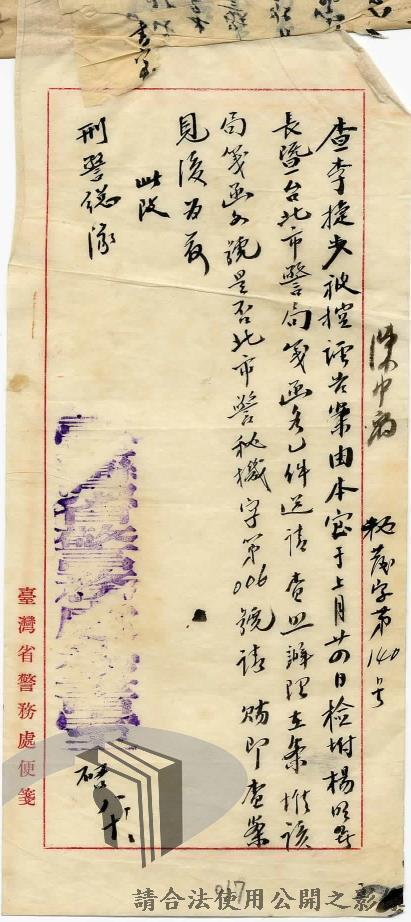 陳中庸
秘茂字第140號
查李捷夫被控誣告案由本室于上月廿四日檢附楊
長暨台北市警局箋函各乙件送請查照辦理在案惟該
局箋函文號是否北市警秘機字第006號請賜即查案
見復為荷
此致
刑警總隊
啟 八、十、
臺灣省警務處便箋
017
請合法使用公開之影